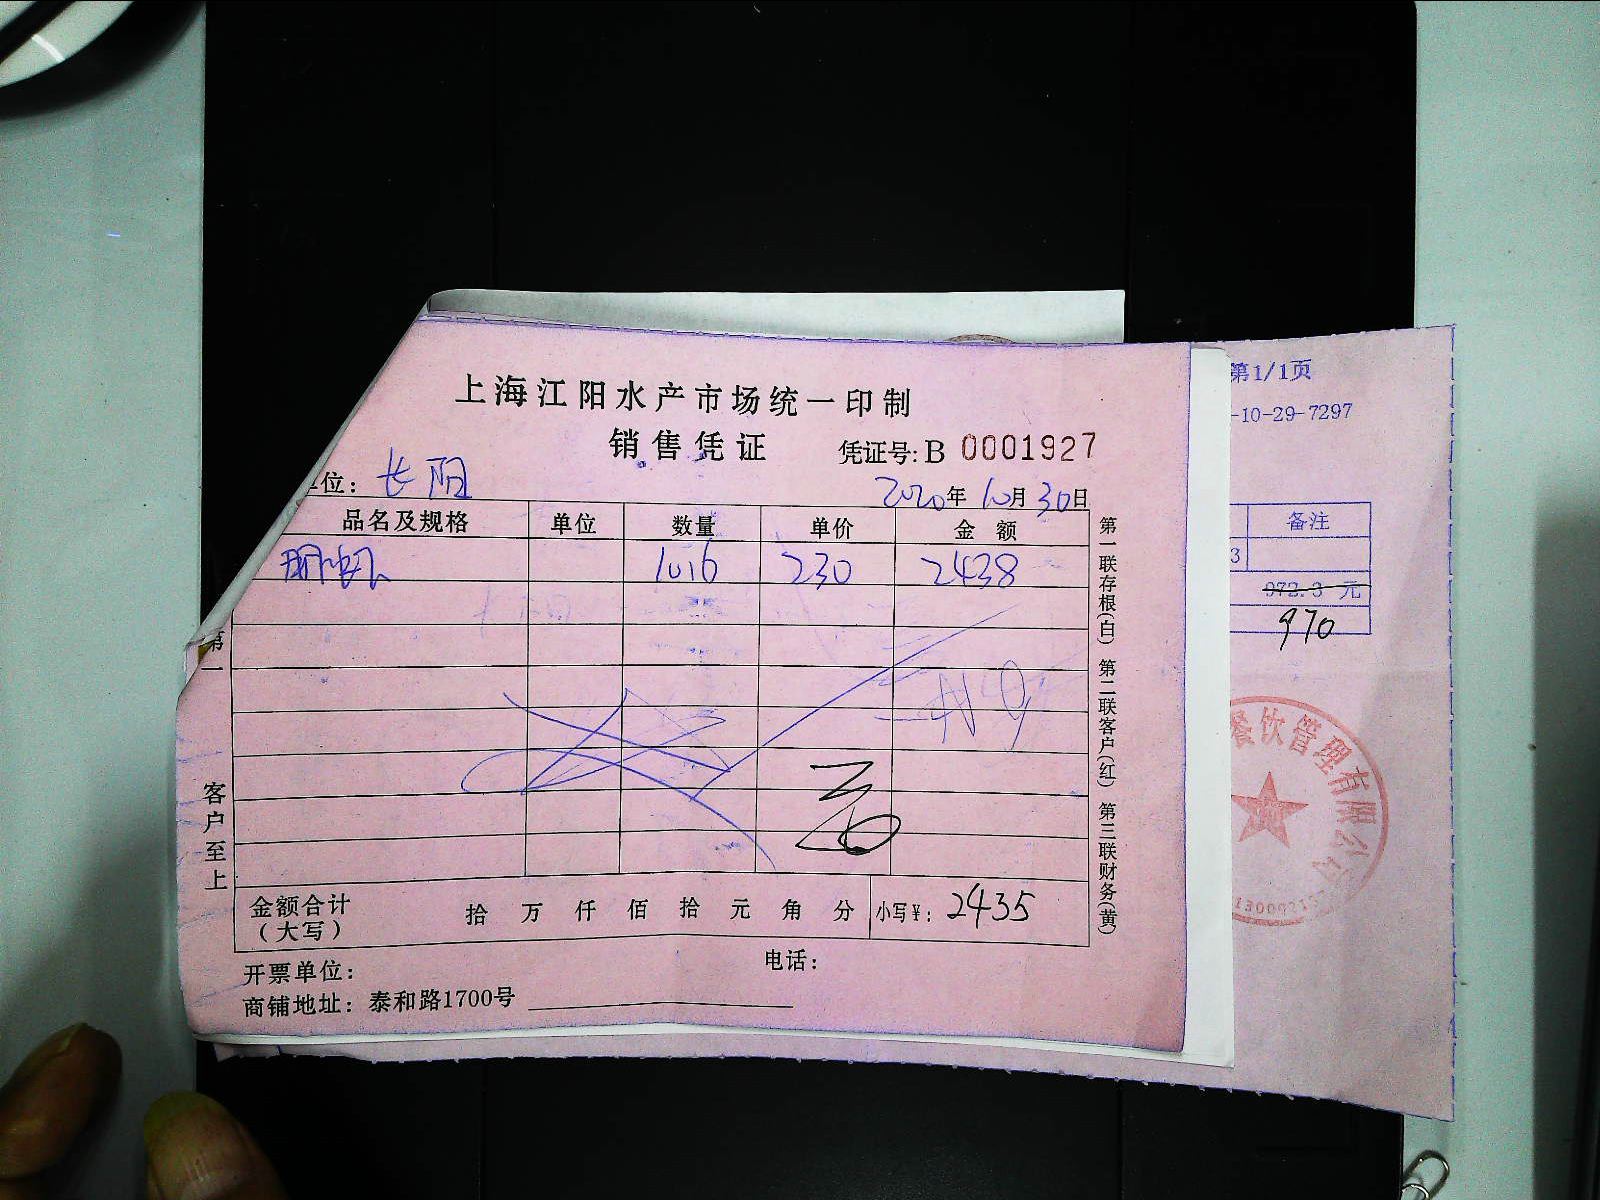 上海江阳水产市场统一印制
销售凭证 凭证号: B 0001927
位: 长阳
2020年 10月 30日
品名及规格 单位 数量 单价 金额
230 2438
第一联存根(白) 第二联客户(红) 第三联财务(黄)
第一
客户至上
金额合计(大写) 拾 万 仟 佰 拾 元 角 分 小写¥: 2435
开票单位: 电话:
商铺地址: 泰和路1700号
第1/1页
-10-29-7297
备注
3
972.3 元
970
餐饮管理有限公司